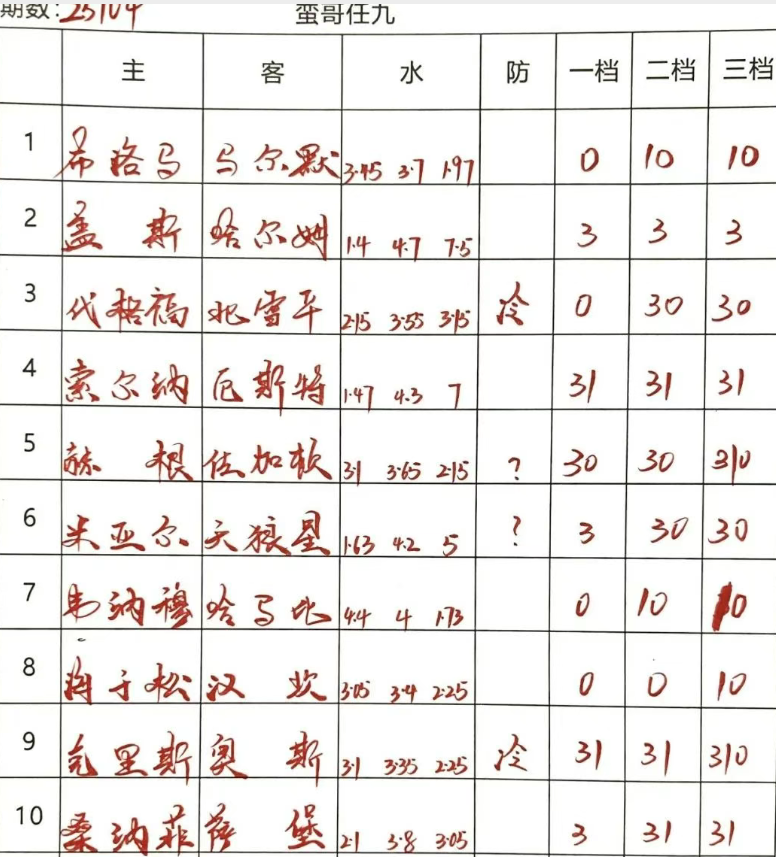 期数:25104 蛮哥任九
主 客 水 防 一档 二档 三档
1 布洛马 马尔默 3.45 3.7 1.97 0 10 10
2 盖斯 哈尔姆 1.4 4.7 7.5 3 3 3
3 代格福 北雪平 2.15 3.55 3.15 冷 0 30 30
4 索尔纳 厄斯特 1.47 4.3 7 31 31 31
5 赫根 佐加顿 3.1 3.65 2.15 ? 30 30 310
6 米亚尔 天狼星 1.63 4.2 5 ? 3 30 30
7 韦纳穆 哈马比 4.4 4 1.73 0 10 10
8 海于松 汉坎 3.05 3.4 2.25 0 0 10
9 克里斯 奥斯 3.1 3.35 2.25 冷 31 31 310
10 桑纳菲 萨堡 2.1 3.8 3.05 3 31 31